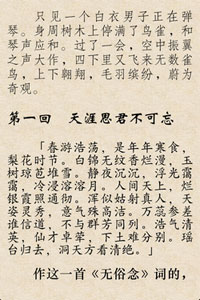 只见一个白衣男子正在弹
琴。身周树木上停满了鸟雀，和
琴声应和。过了一会，空中振翼
之声大作，四下里又飞来无数雀
鸟，上下翱翔，毛羽缤纷，蔚为
奇观。
第一回　天涯思君不可忘
「春游浩荡，是年年寒食，
梨花时节。白锦无纹香烂漫，玉
树琼苞堆雪。静夜沉沉，浮光霭
霭，冷浸溶溶月。人间天上，烂
银霞照通彻。浑似姑射真人，天
姿灵秀，意气殊高洁。万蕊参差
谁信道，不与群芳同列。浩气清
英，仙才卓荦，下土难分别。瑶
台归去，洞天方看清绝。」
作这一首《无俗念》词的，